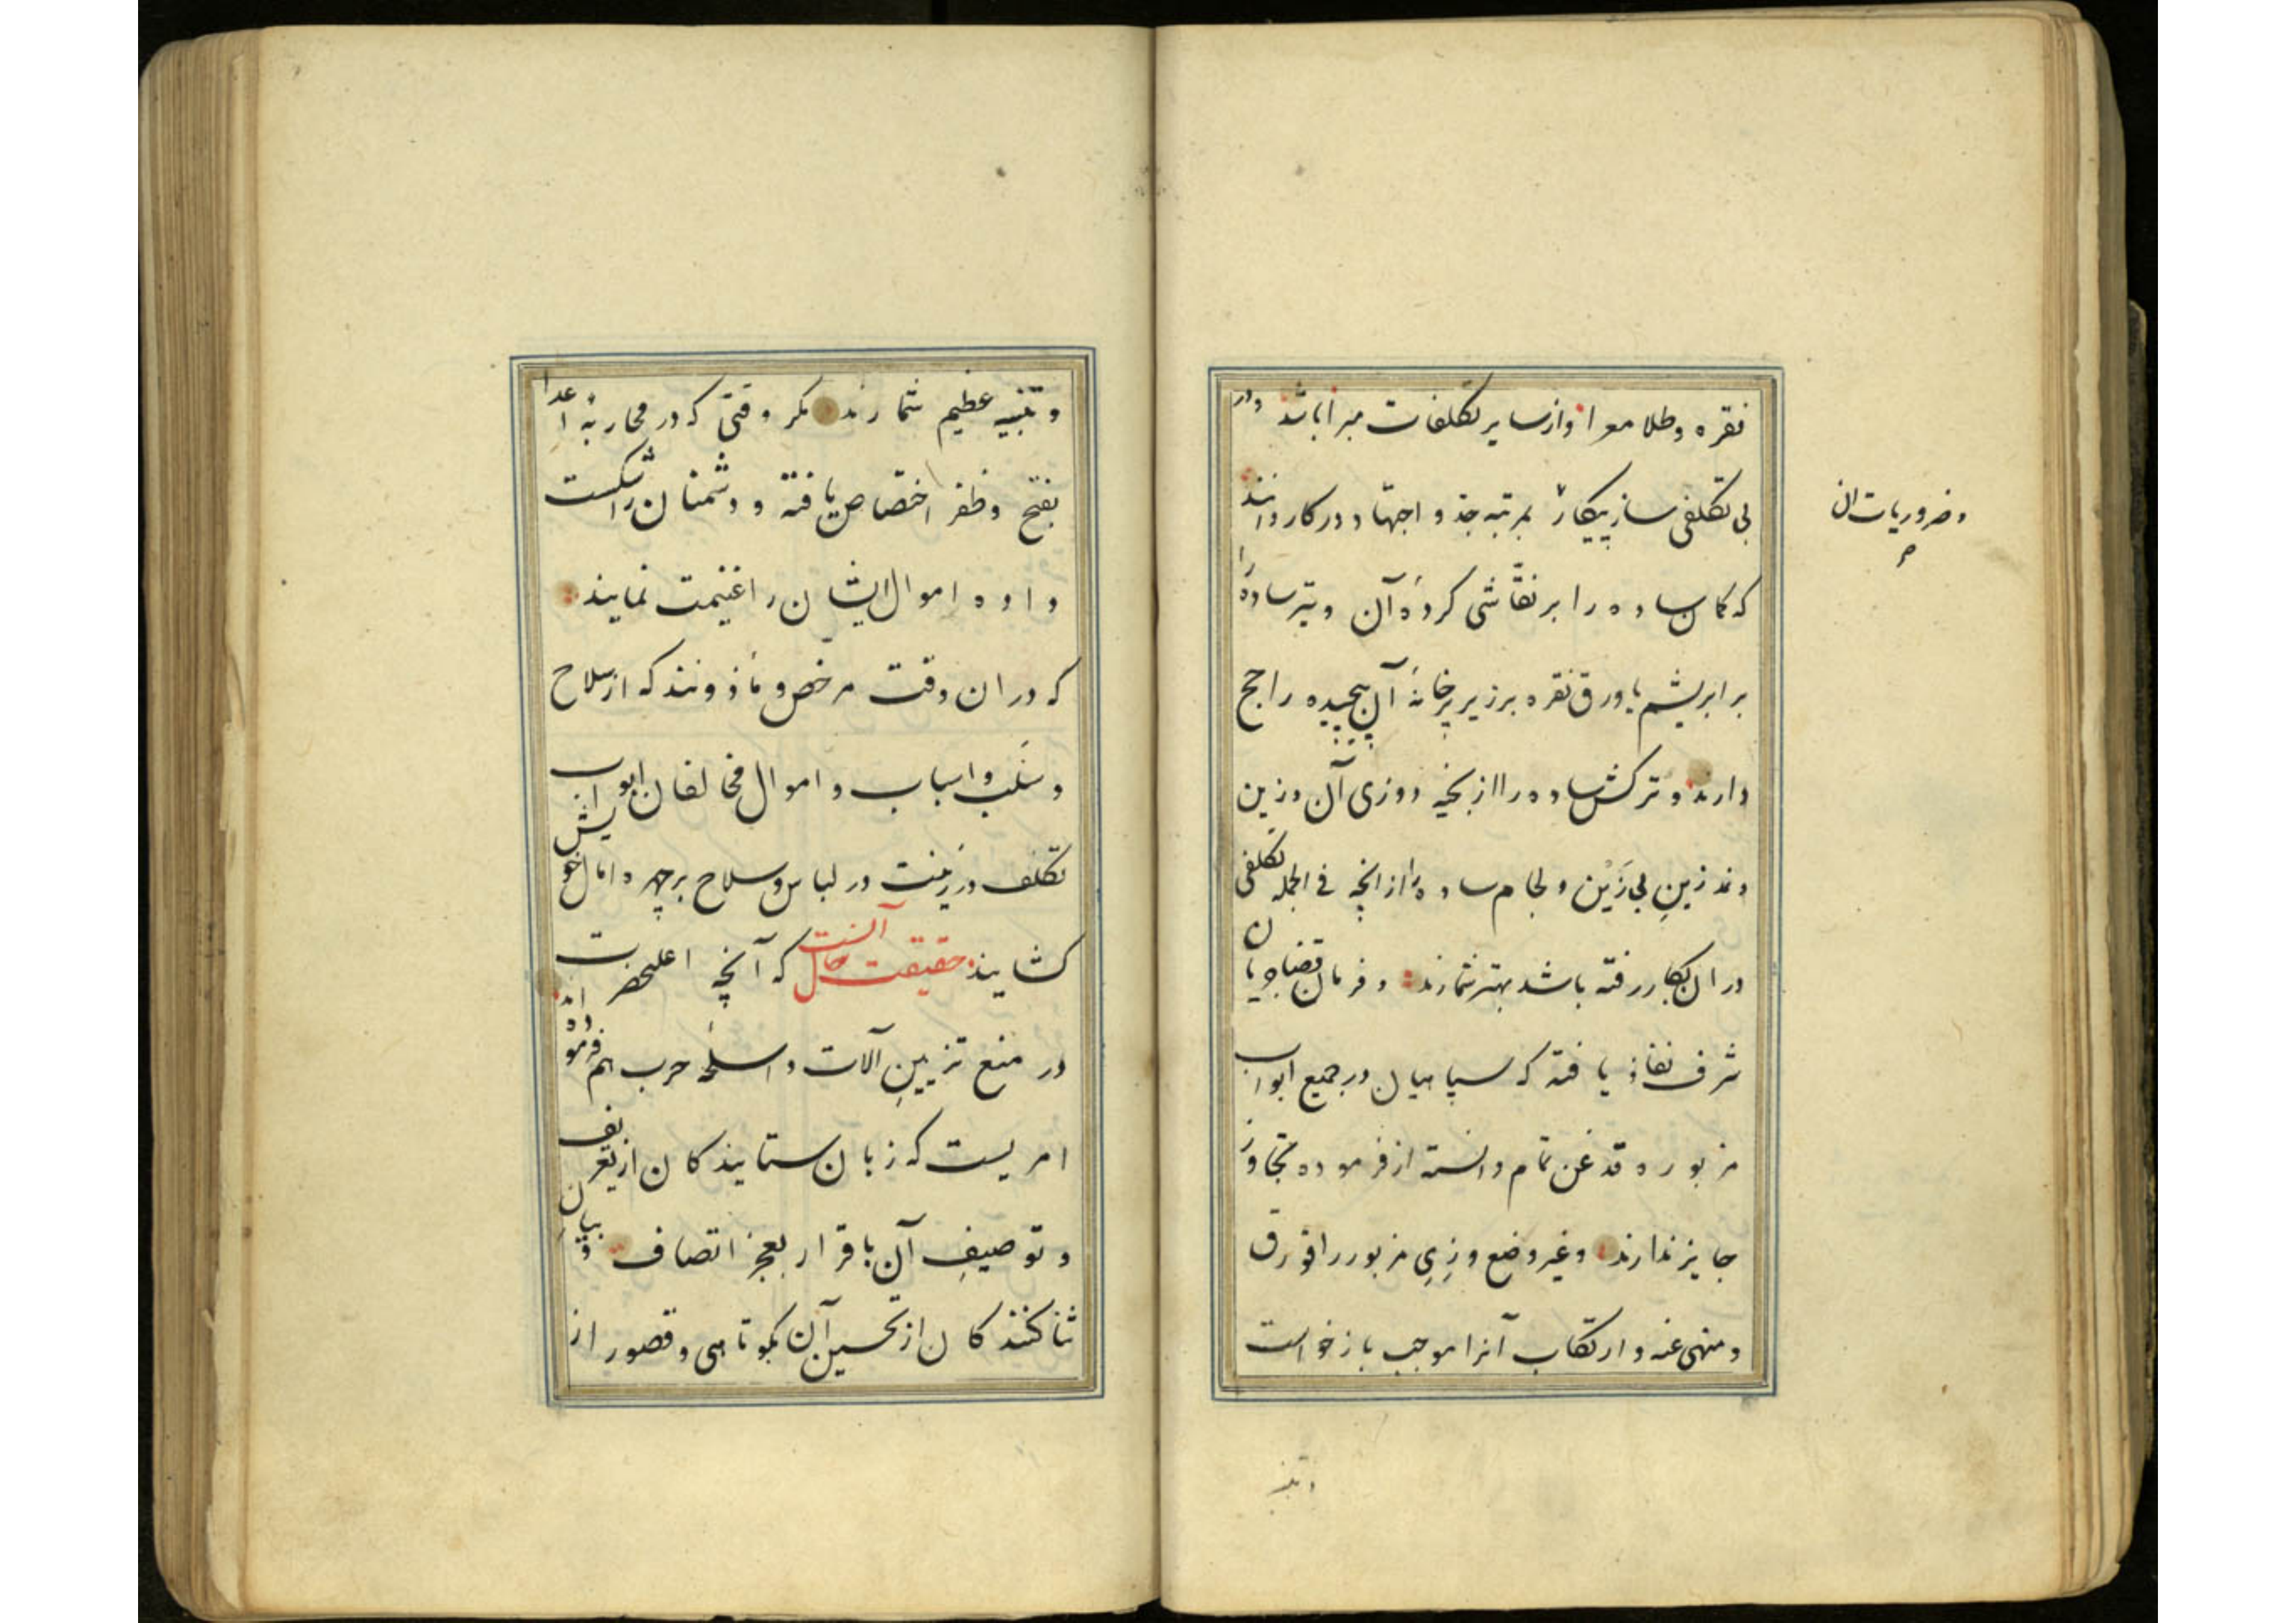 نقره و طلا معرا و از سایر تکلفات مبرا باشد و در
بی تکلفی ساز پیکار بمرتبه جد و اجتهاد در کار دانند
و ضروریات ان
صح
که کمان ساده را بر نقّاشی کردهٔ آن و تیر ساده را
بر ابریشم یا ورق نقره بر زیر پرخانهٔ آن پیچیده راجح
دارند و ترکش ساده را از بخیه دوزی آن و زین
و ند زینِ بی زَیْن و لجام ساده را از انچه فی الجمله تکلفی
در ان بکار رفته باشد بهتر شمارند و فرمان قضا جریان
شرف نفاذ یافته که سپاهیان در جمیع ابواب
مزبوره قدغن تمام دانسته از فرموده تجاوز
جایز ندارند و غیر وضع و زِیِ مزبور را قورق
و منهی عنه و ارتکاب آنرا موجب بازخواست
و تنبیه
و تنبیه عظیم شمارند مکر وقتی که در محاربهٔ اعدا
بفتح و ظفر اختصاص یافته و دشمنان را شکست
داده اموال ایشان را غنیمت نمایند
که در ان وقت مرخص و مأذونند که از سلاح
و سَلَب و اسباب و اموال مخالفان ابواب
تکلف و زینت در لباس و سلاح بر چهره امال خویش
کشایند حقیقت حال آنست که آنچه اعلیحضرت
در منع تزیینِ آلات و اسلحهٔ حرب هم فرموده اند
امریست که زبان ستایندکان از تعریف
و توصیفِ آن باقرار بعجز اتصاف و بیانِ
ثنا کنندکان از تحسین آن بکوتاهی و قصور از